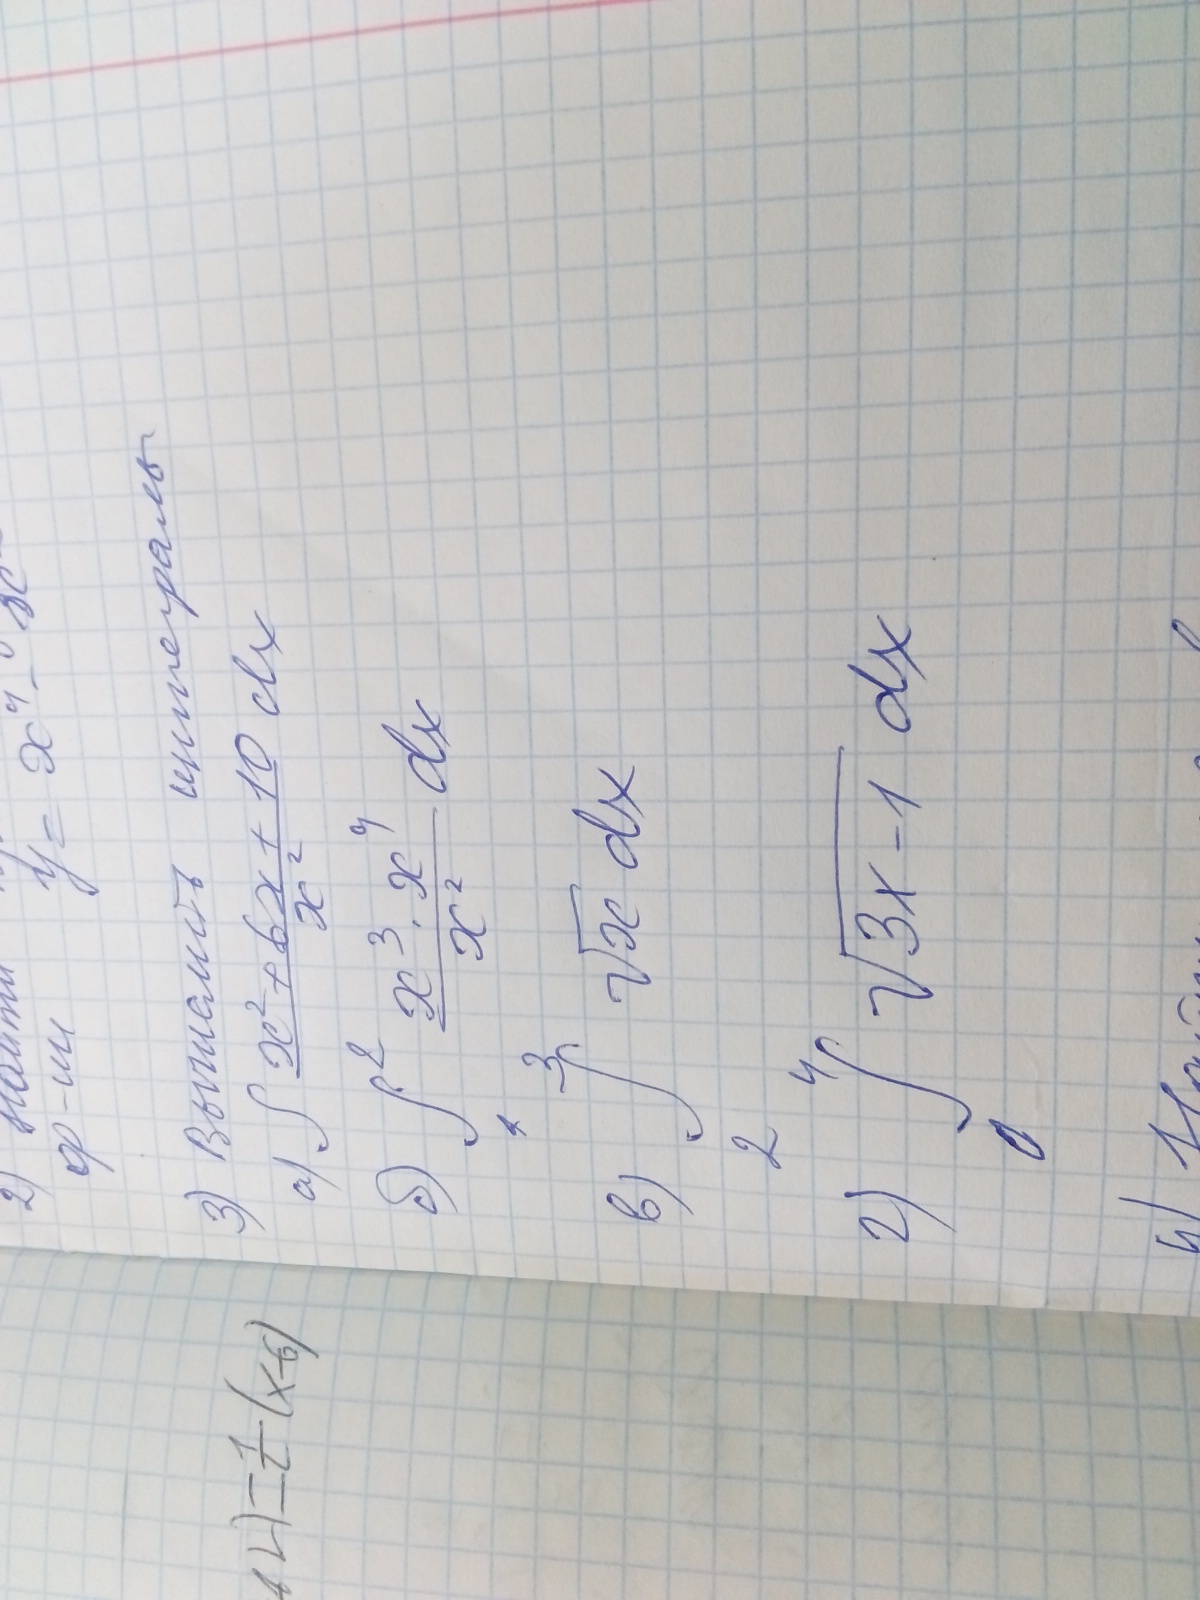 2) Найти
ф-ии y = x⁴ -
3) Вычислить интегралы
а) ∫ (x² + 6x + 10)/x² dx
б) ∫₁² (x³ · x⁴)/x² dx
в) ∫₂³ √x dx
г) ∫₀⁴ √(3x-1) dx
4)